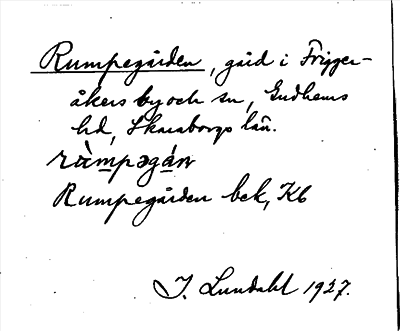 Rumpegården, gård i Frigger-
åkers by och sn, Gudhems
hd, Skaraborgs län.
Rumpegården bek, Kb
I. Lundahl 1927.